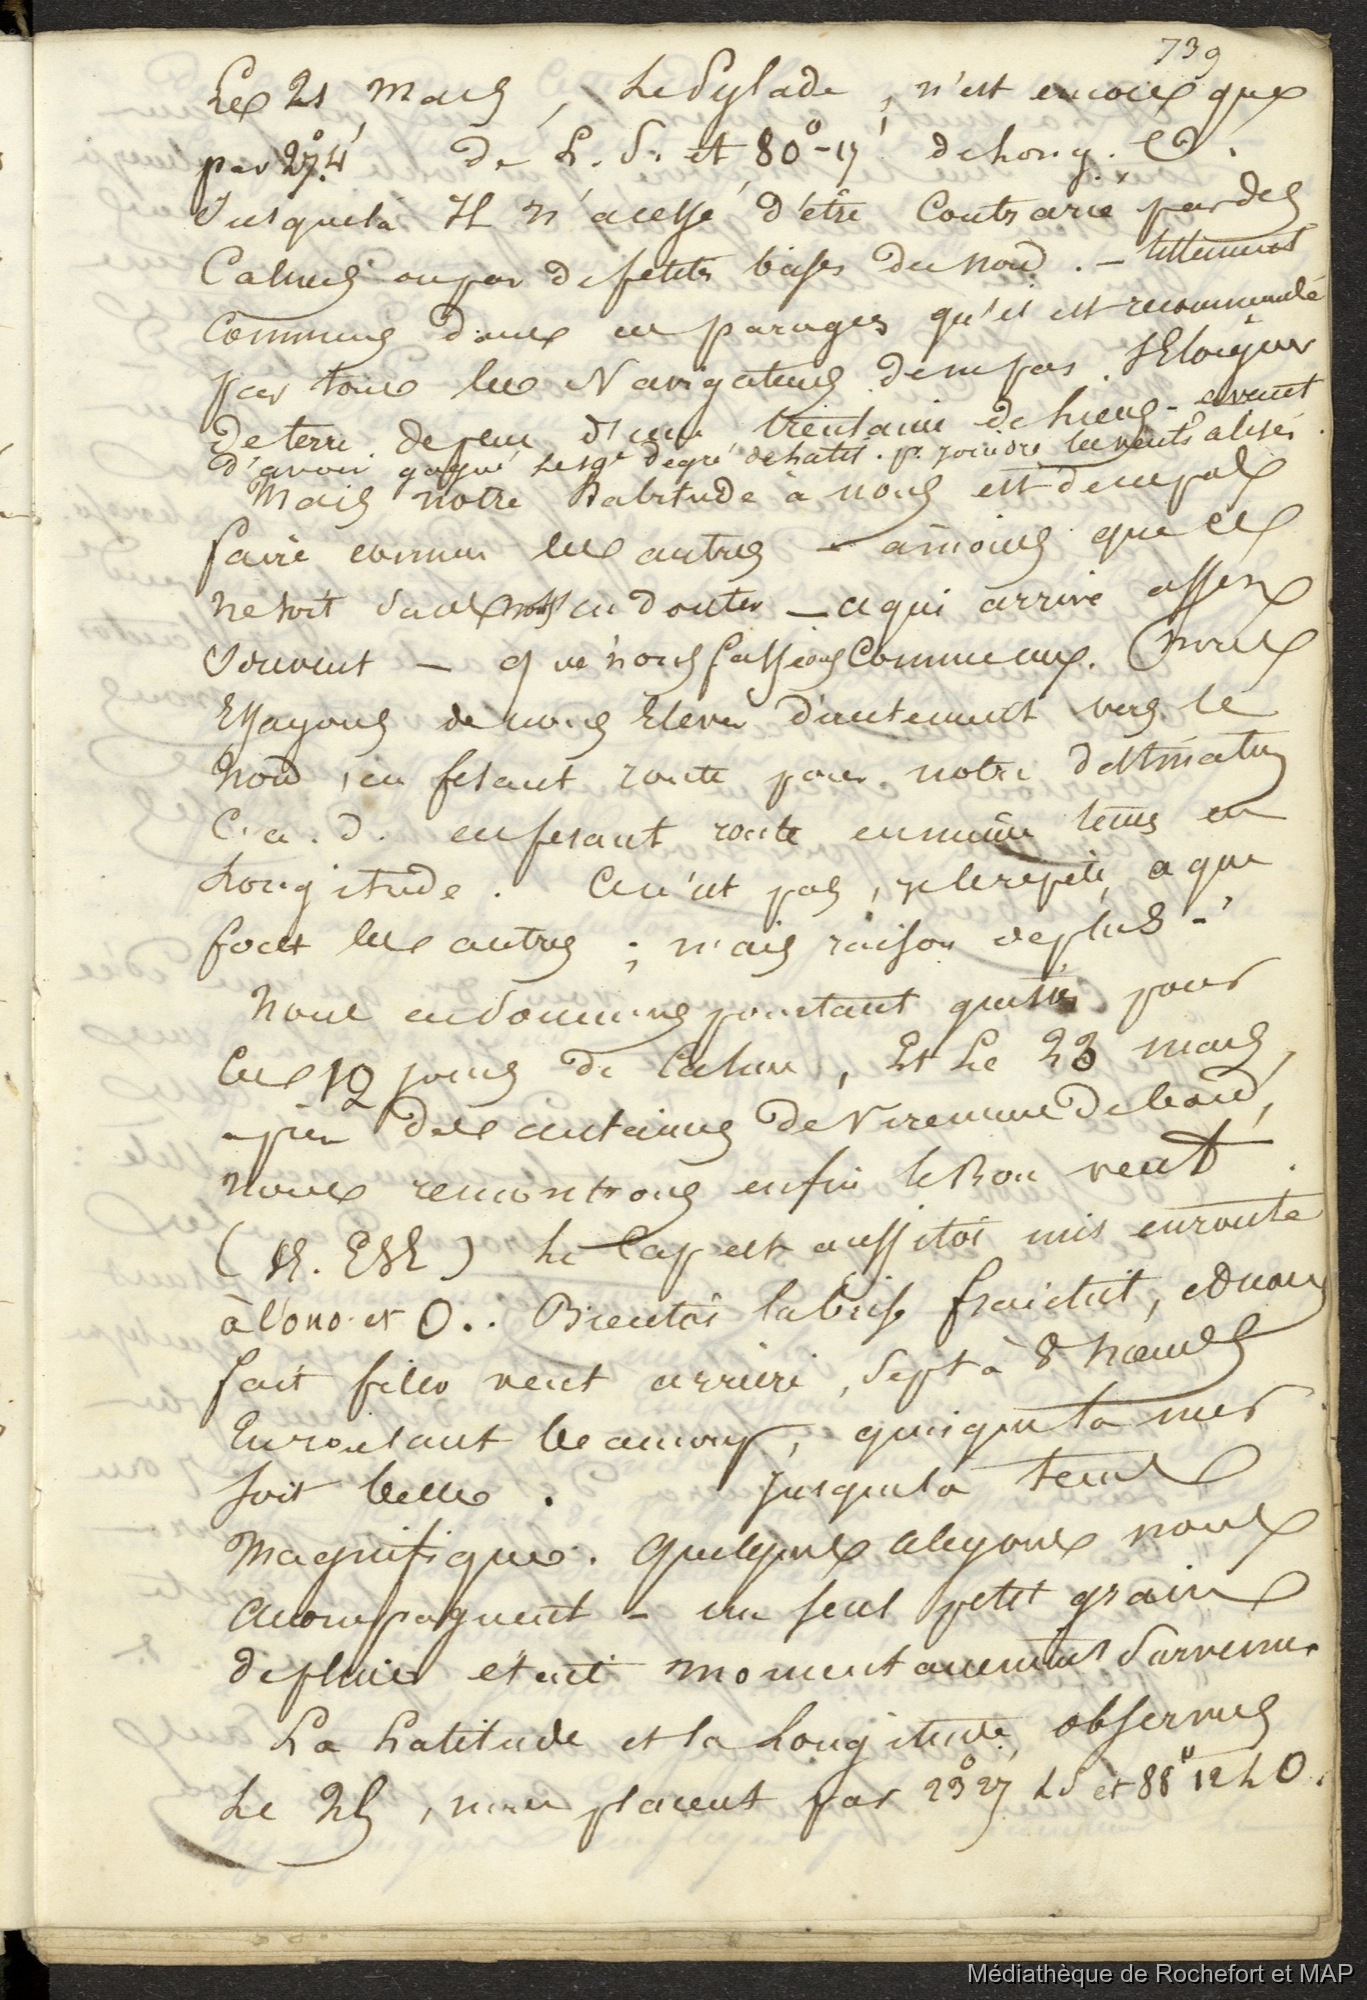 739
Le 21 Mars, Le Pylade, n'est encore que
par 27°.4' de L. S. et 80°-19' de Long. O.
Jusques là Il n'a cessé d'être Contrarié par des
Calmes ou par de petites brises du nord. - tellement
Communs dans ces parages qu'il est recommandé
par tous les Navigateurs de ne pas S'Eloigner
de terre de peur d'une trentaine de lieues - avant
d'avoir gagné le degré de latit. pr. joindre les vents alisés.
Mais notre Habitude à nous est de ne pas
faire comme les autres - à moins que ce
ne soit sans nous en douter - ce qui arrive assez
Souvent - que nous fassions Comme eux. Nous
Essayons de nous Elever directement vers le
Nord, en fesant route pour notre destination
C. a. d. en fesant route en même tems en
Longitude. Ce n'est pas, je le répète, ce que
font les autres ; mais raison de plus -
Nous en sommes pourtant quittes pour
ces 12 jours de Calme, Et Le 23 mars,
après des centaines de Viremens de bord,
nous rencontrons enfin le Bon vent.
(SE. ESE) Le Cap est aussitôt mis en route
à l'ONO et O.. Bientôt la brise fraichit, et nous
fait filer vent arrière, Sept à 8 nœuds
En roulant beaucoup, quoique la mer
soit belle. Jusques là tems
Magnifique. Quelques alcyons nous
accompagnent - un seul petit grain
de pluie était momentanement Survenu.
La Latitude et la Longitude, observées
Le 25, nous placent par 23° 27 LS et 88° 12 LO.
Médiathèque de Rochefort et MAP